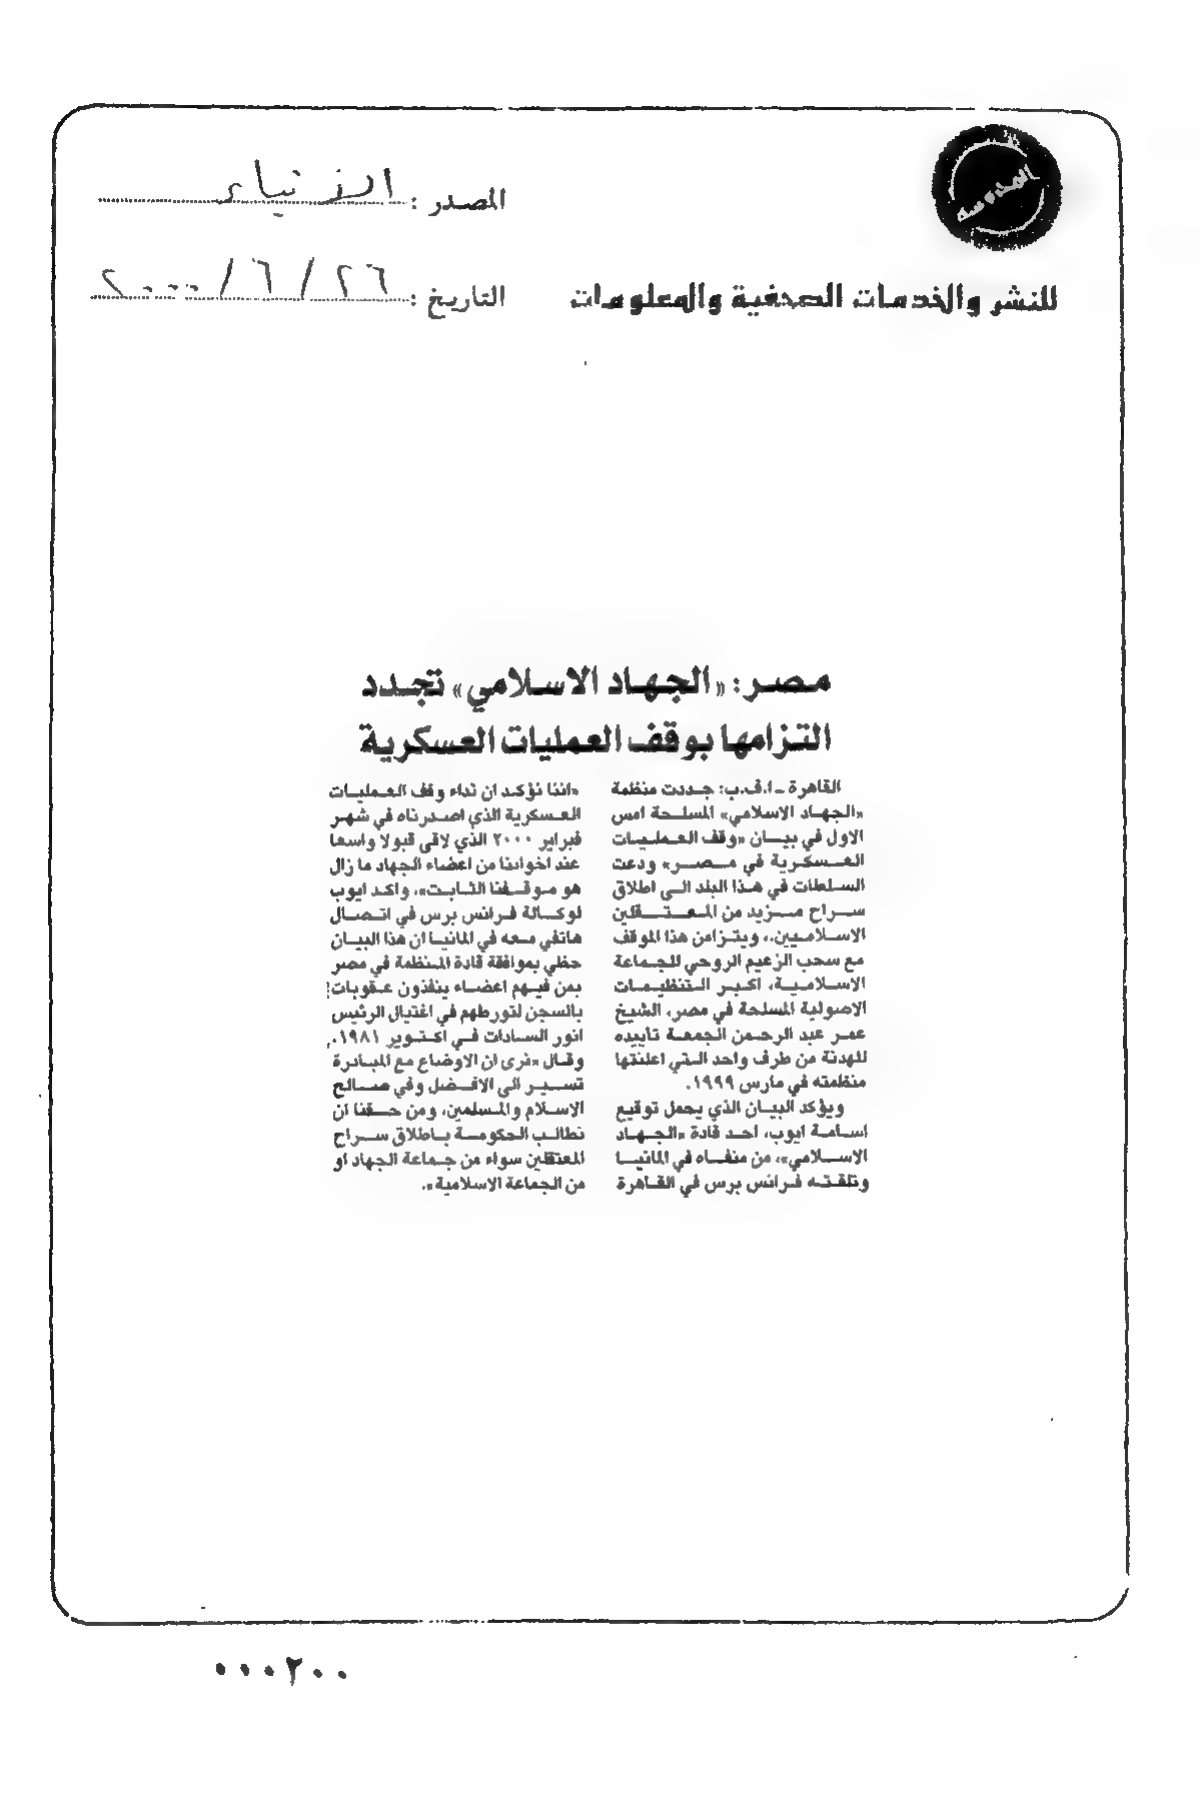 المصدر : الانباء
التاريخ : ٢٦ / ٦ / ٢٠٠٠
للنشر والخدمات الصحفية والمعلومات
مصر: «الجهاد الاسلامي» تجدد
التزامها بوقف العمليات العسكرية
القاهرة ـ ا.ف.ب: جددت منظمة
«الجهاد الاسلامي» المسلحة امس
الاول في بيان «وقف العمليات
العسكرية في مصر» ودعت
السلطات في هذا البلد الى اطلاق
سراح مزيد من المعتقلين
الاسلاميين.، ويتزامن هذا الموقف
مع سحب الزعيم الروحي للجماعة
الاسلامية، اكبر التنظيمات
الاصولية المسلحة في مصر، الشيخ
عمر عبد الرحمن الجمعة تأييده
للهدنة من طرف واحد التي اعلنقها
منظمته في مارس ١٩٩٩.
ويؤكد البيان الذي يحمل توقيع
اسامة ايوب، احد قادة «الجهاد
الاسلامي»، من منفاه في المانيا
وتلقته فرانس برس في القاهرة
«اننا نؤكد ان نداء وقف العمليات
العسكرية الذي اصدرناه في شهر
فبراير ٢٠٠٠ الذي لاقى قبولا واسعا
عند اخواننا من اعضاء الجهاد ما زال
هو موقفنا الثابت»، واكد ايوب
لوكالة فرانس برس في اتصال
هاتفي معه في المانيا ان هذا البيان
حظي بموافقة قادة المنظمة في مصر
بمن فيهم اعضاء ينفذون عقوبات
بالسجن لتورطهم في اغتيال الرئيس
انور السادات في اكتوير ١٩٨١.
وقال «نرى ان الاوضاع مع المبادرة
تسير الى الافضل وفي صالح
الاسلام والمسلمين، ومن حقنا ان
نطالب الحكومة باطلاق سراح
المعتقلين سواء من جماعة الجهاد او
من الجماعة الاسلامية».
٠٠٠٢٠٠